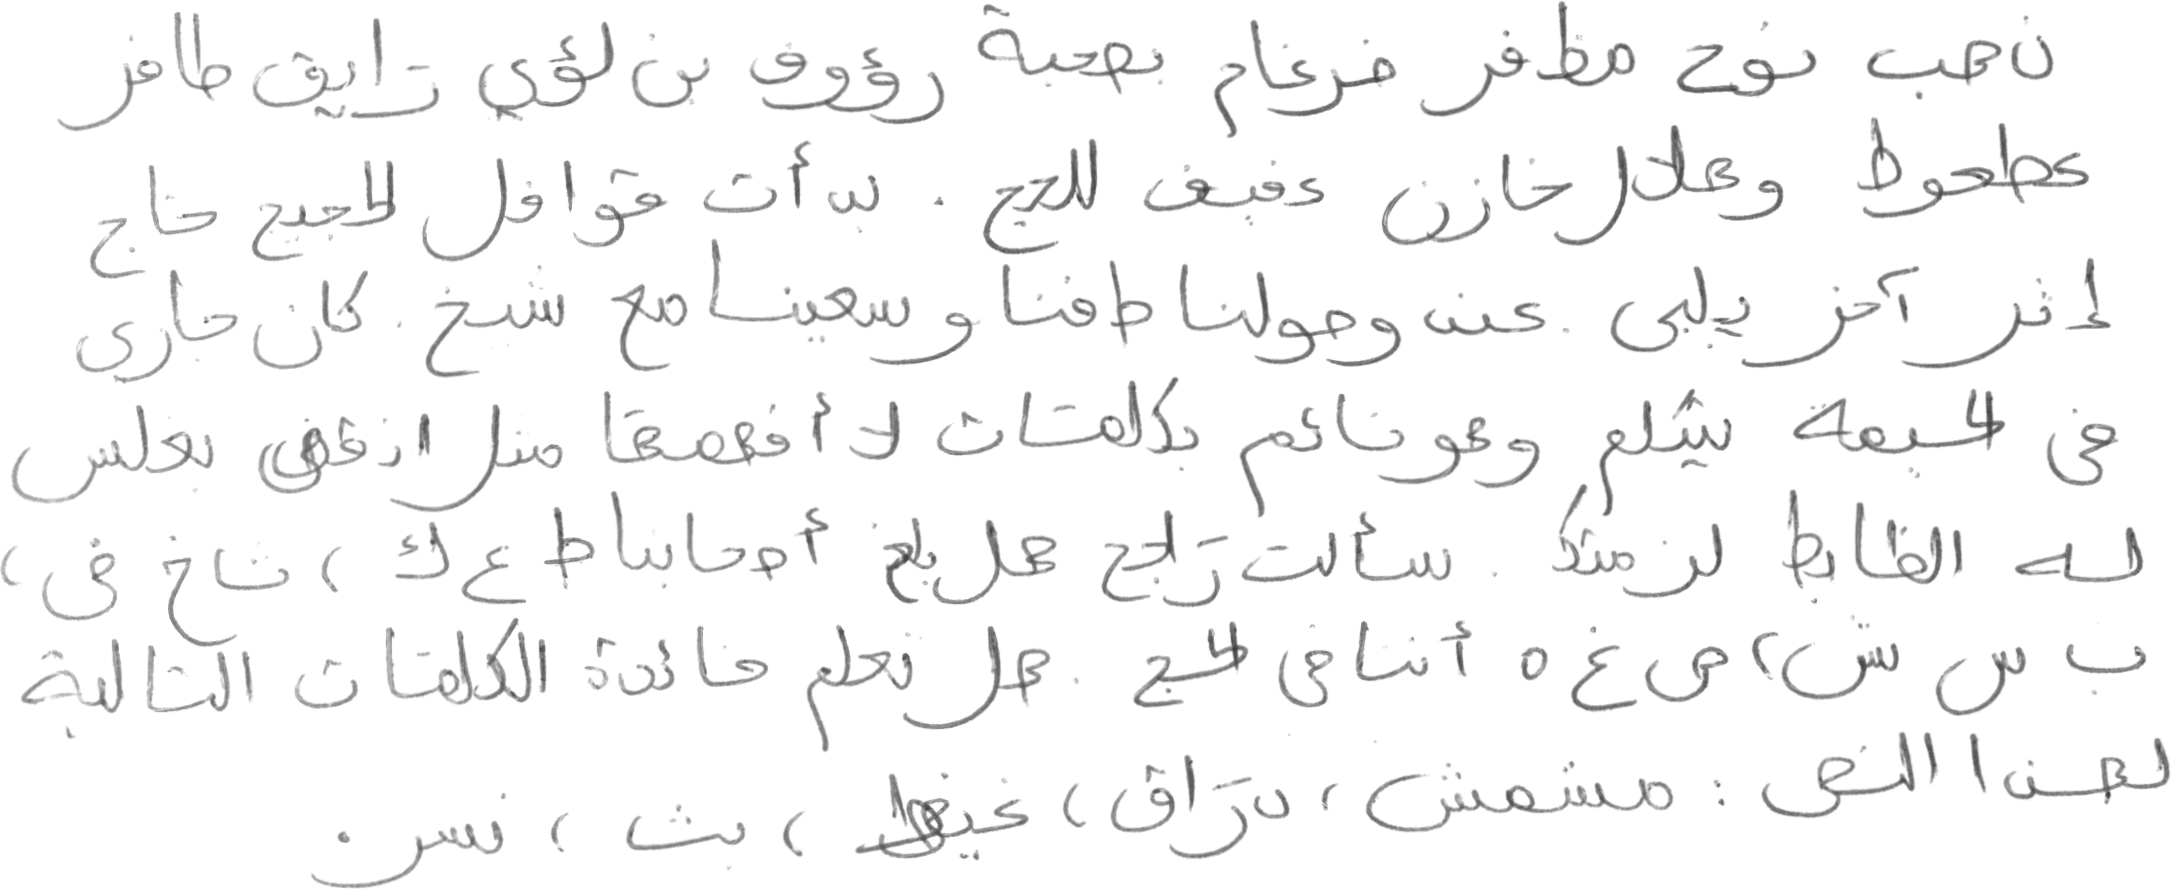 ذهب نوح مظفر ضرغام بصحبة رؤوف بن لؤي رايق ظافر
عطعوط وهلال خازن عفيف للحج . بدأت قوافل الحجيج حاج
إثر آخر يلبي . عند وصولنا طفنا وسعينا مع شيخ . كان جاري
في الخيمة يتكلم وهو نائم بكلمات لا أفهمها مثل بغلس
له الضابط . سألت راجح هل بلغ ط ع ك ، شاخ في ،
ب س ش ، ص غ ه أننا في الحج . هل تعلم فائدة الكلمات التالية
لهذا النص : مشمش ، درّاق ، غيظ ، بث ، نسر .